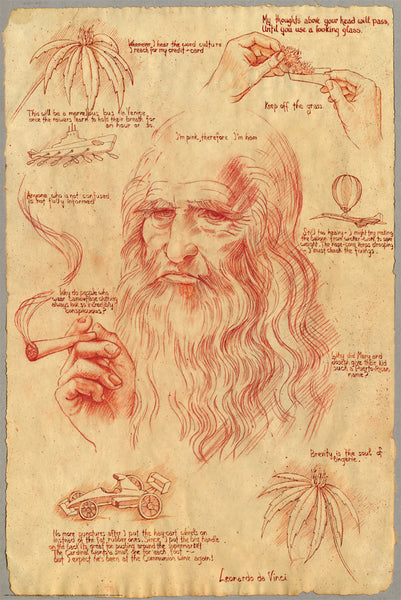 My thoughts above your head will pass,
Until you use a looking glass.
Whenever I hear the word culture
I reach for my credit-card
Keep off the grass
This will be a marvellous bus in Venice
once the rowers learn to hold their breath for
an hour or so.
I'm pink, therefore I'm ham
Anyone who is not confused
is not fully informed
Still too heavy - I might try making
the balloon from
weight. The nose-cone keeps drooping
- I must check the fixings
Why do people who
wear camouflage clothing
always look so incredibly
conspicuous?
Why did Mary and
Joseph give their kid
such a Puerto-Rican
name?
Brevity is the soul of
lingerie.
No more punctures after I put the hay-cart wheels on
instead of the fat rubber ones. Since I put the big handle
on the back its great for pushing around the supermarket!
The Cardinal wants a small one for each foot -
but I expect he's been at the Communion wine again!
Leonardo da Vinci